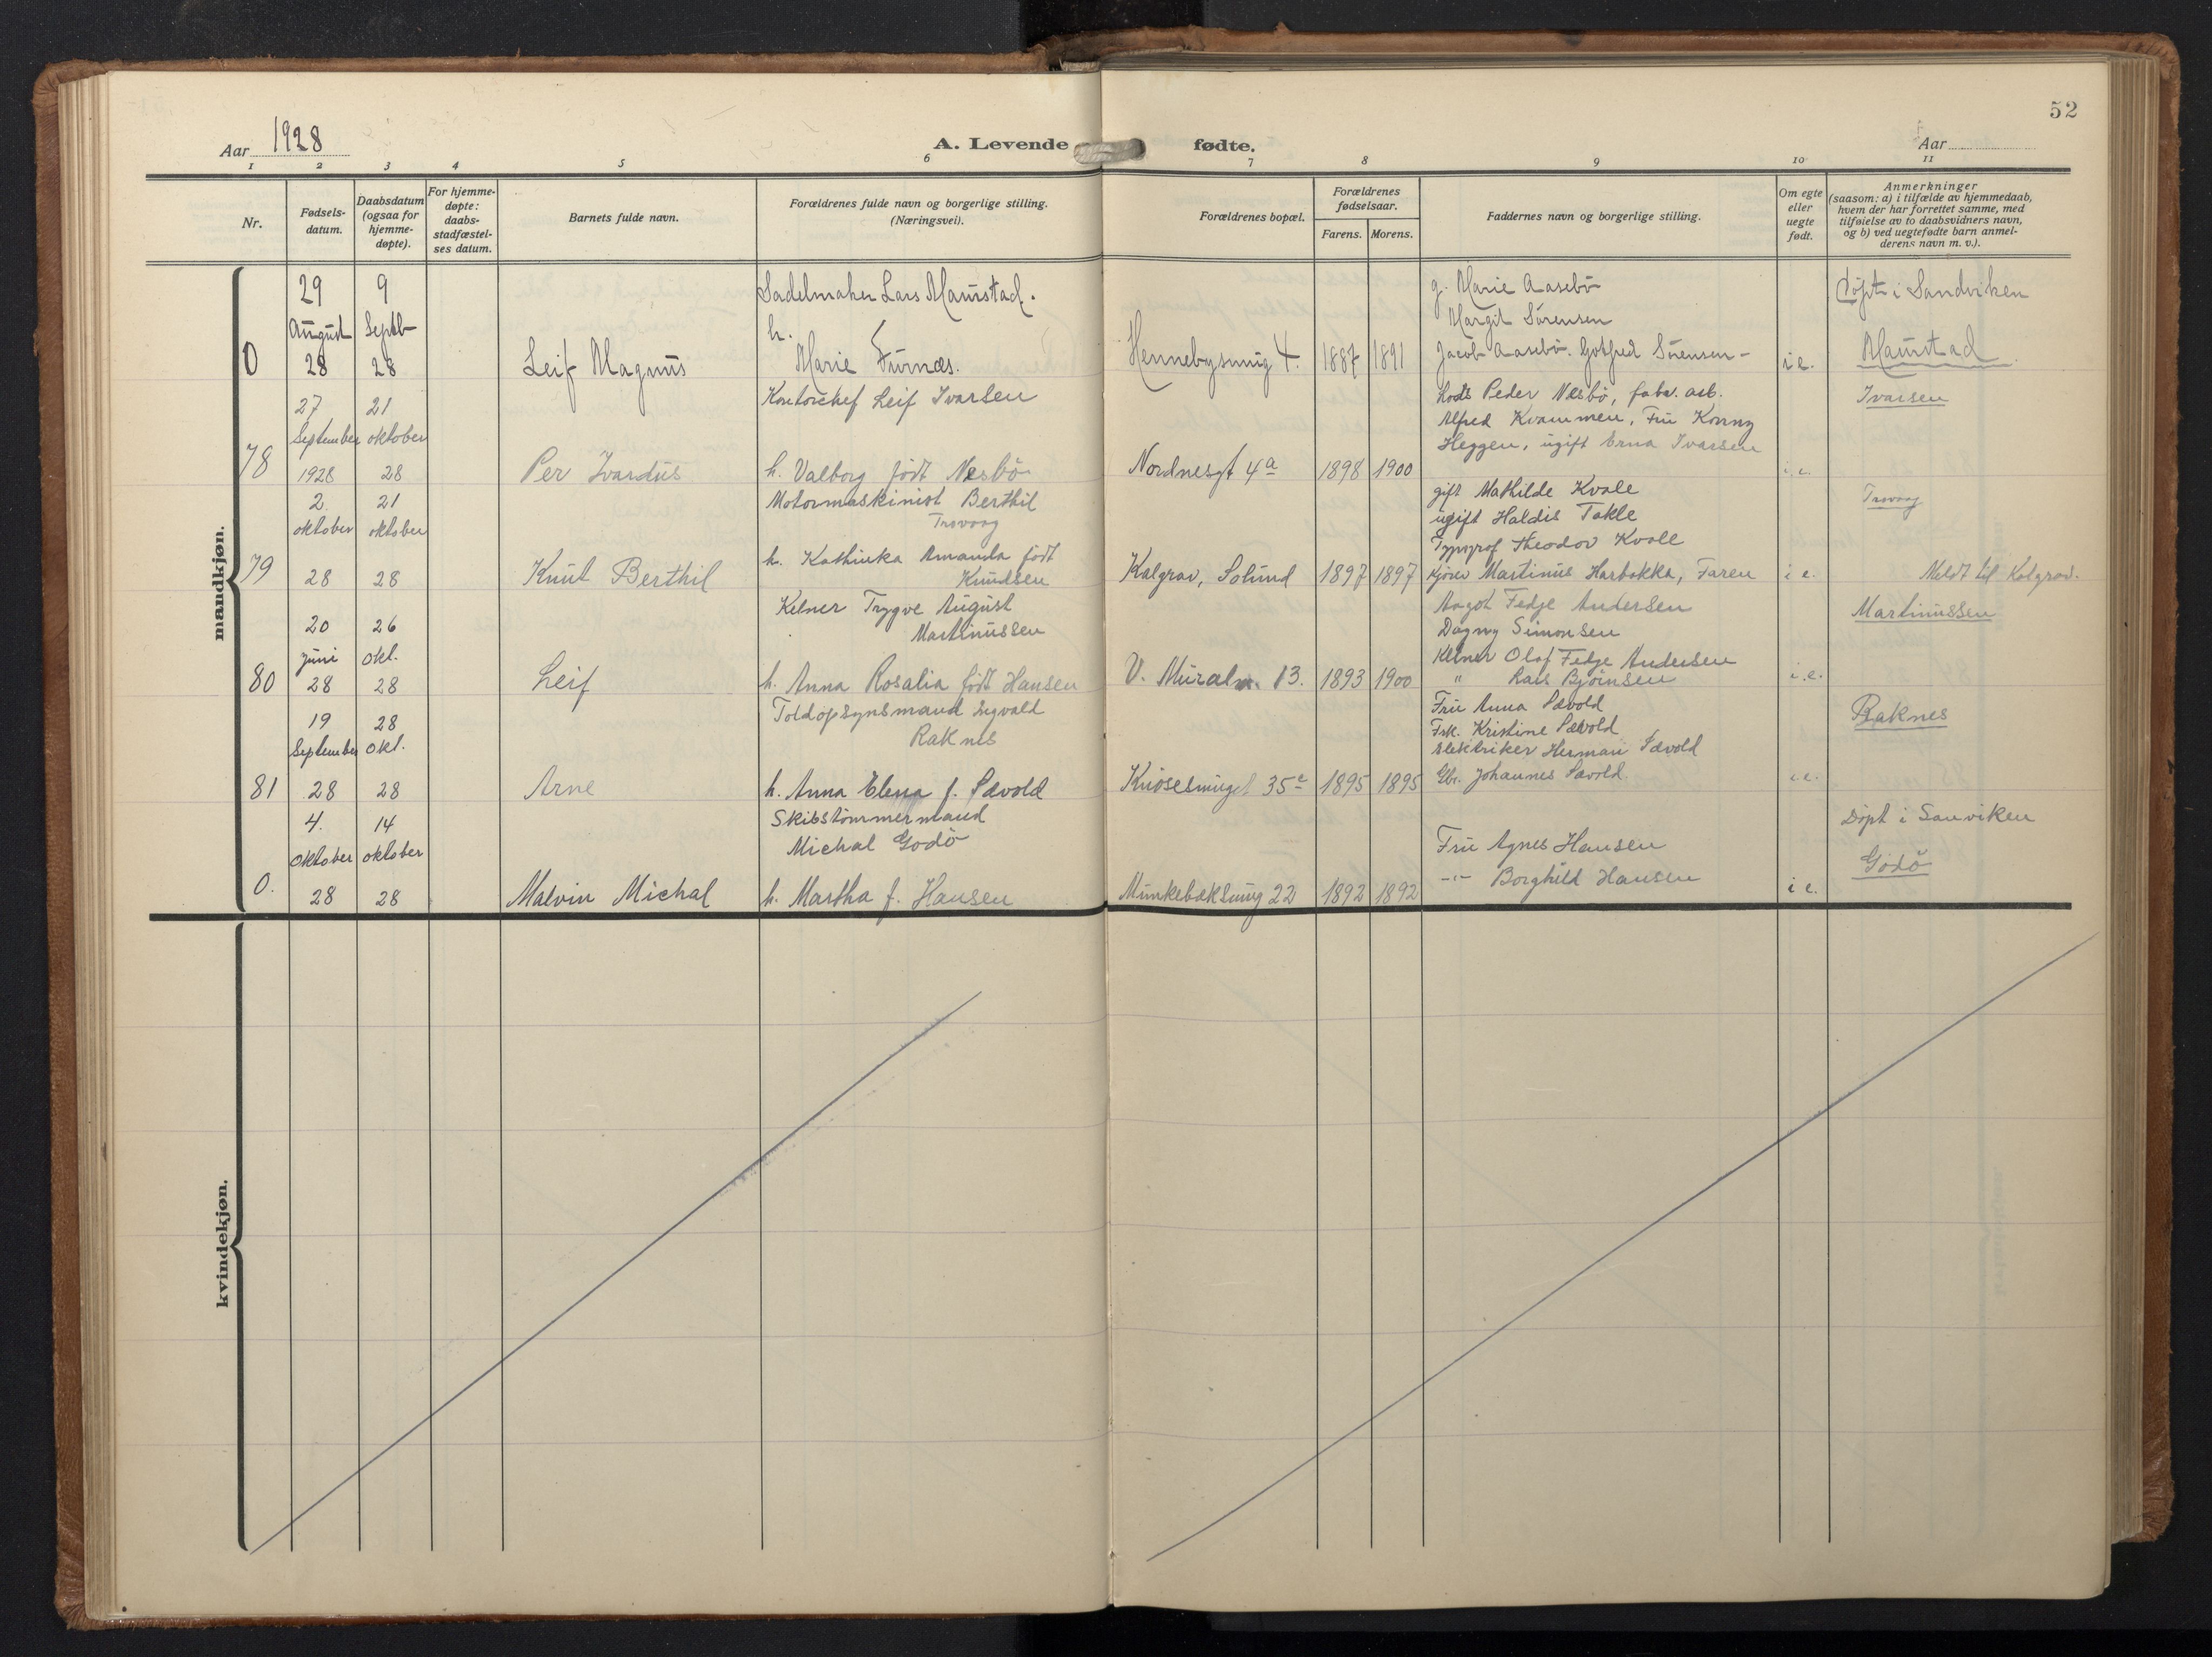 52
Aar 1928
A. Levende fødte.
Aar
1 2 3 4 5 6 7 8 9 10 11
Nr.
Fødsels-
datum.
Daabsdatum
(ogsaa for
hjemme-
døpte).
For hjemme-
døpte:
daabs-
stadfæstel-
ses datum.
Barnets fulde navn.
Forældrenes fulde navn og borgerlige stilling.
(Næringsvei).
Forældrenes bopæl.
Forældrenes
fødselsaar.
Farens. Morens.
Faddernes navn og borgerlige stilling.
Om egte
eller
uegte
født.
Anmerkninger
(saasom: a) i tilfælde av hjemmedaab,
hvem der har forrettet samme, med
tilføielse av to daabsvidners navn,
og b) ved uegtefødte barn anmel-
derens navn m. v.).
mandkjøn.
0
29
August
28
9
Septb
28
Leif Magnus
Sadelmaker Lars Mamstad.
h.
Marie Furnæs.
Hennebysmug 4.
1887 1891
g. Marie Aasebö
Margit Sörensen
Jacob Aasebö. Gotfred Sörensen -
i e.
Döpt i Sandviken
Mamstad
78
27
September
1928
21
oktober
28
Per Ivardus
Kontorchef Leif Ivarsen
h. Valborg född Nesbö
Nordnesgt 4a
1898 1900
Lods Peder Nesbö, fabr. arb.
Alfred Kvammen, Fru Konny
Heggen, ugift Erna Ivarsen
i. e.
Ivarsen
79
2.
oktober
28
21
oktober
28
Knut Berthil
Motormaskinist Berthil
Trovaag
h. Kathinka Amanda född
Knudsen
Kalgrav, Solund
1897 1897
gift Mathilde Kvale
ugift Haldis Takle
Typograf Theodor Kvale
Kjörer Martinus Harbakka, Faren
i e.
Trovaag
Meldt til Kalgrav.
80
20
juni
28
26
okt.
28
Leif
Kelner Trygve August
Martinussen
h. Anna Rosalia född Hansen
V. Muralm. 13.
1893 1900
Aagot Fedje Andersen
Dagny Simonsen
Kelner Olaf Fedje Andersen
" Lars Bjørnsen
i.e.
Martinussen
81
19
September
28
28
okt.
28
Arne
Toldopsynsmand Sigvald
Raknes
h. Anna Elena f. Sævold
Knösesmuget 35c
1895 1895
Fru Anna Sævold
Frk. Kristine Sævold
Elektriker Herman Sævold
Gbr. Johannes Sævold
i. e.
Raknes
0.
4.
oktober
28
14
oktober
28
Malvin Michal
Skibstömmermand
Michal Godö
h. Martha f. Hansen
Munkebæksmug 22
1892 1892
Fru Agnes Hansen
-"- Borghild Hansen
i e.
Döpt i Sanviken
Godö
kvindekjøn.